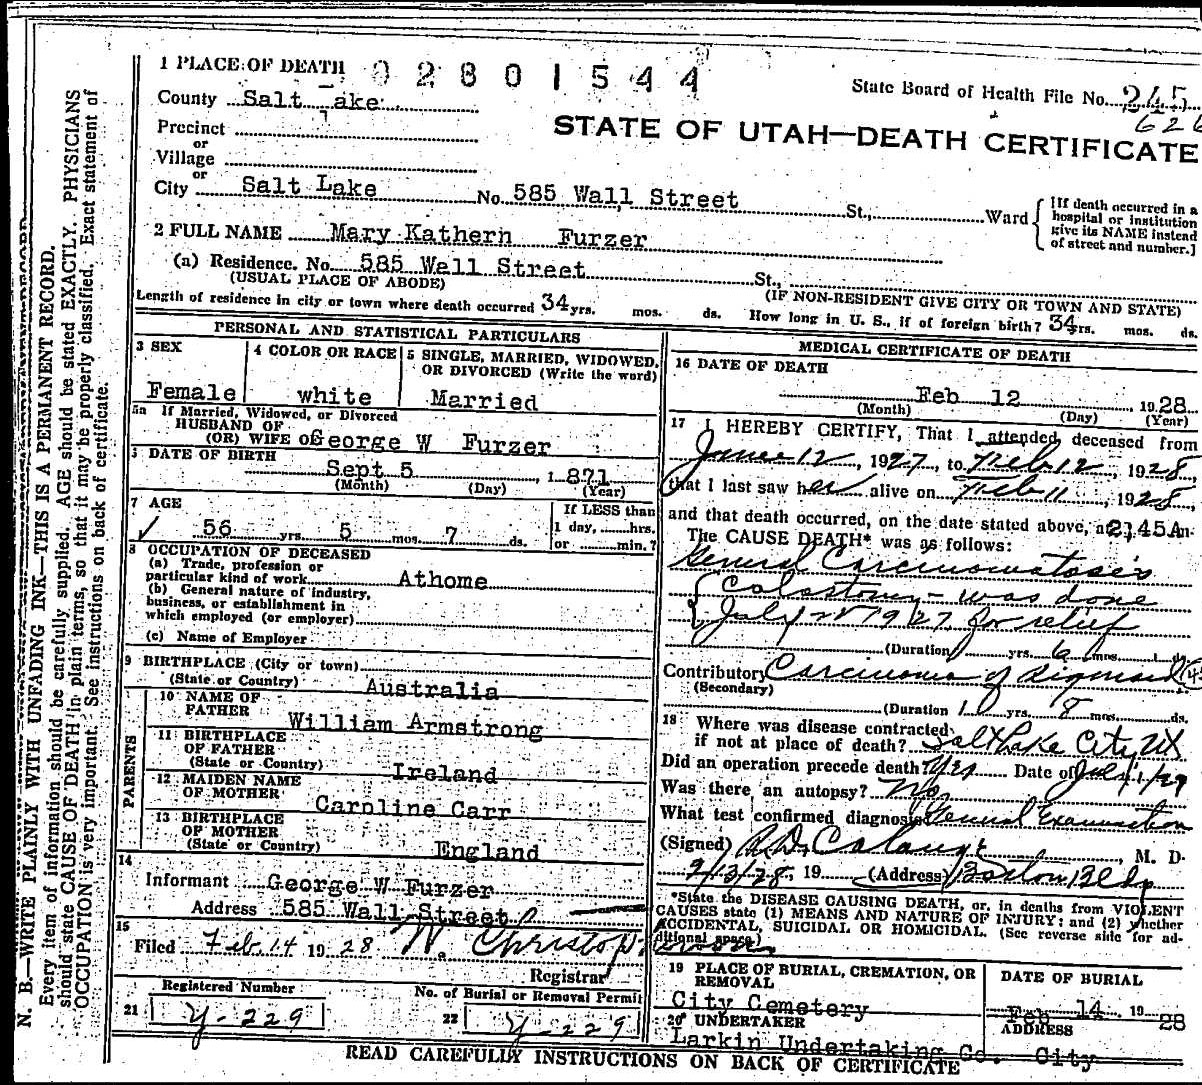 1 PLACE OF DEATH 02801544
State Board of Health File No. 245
626
County Salt Lake
STATE OF UTAH—DEATH CERTIFICATE
Precinct
or
Village
or
City Salt Lake No. 585 Wall Street St., Ward
[If death occurred in a hospital or institution give its NAME instead of street and number.]
2 FULL NAME Mary Kathern Furzer
(a) Residence. No. 585 Wall Street St.,
(USUAL PLACE OF ABODE) (IF NON-RESIDENT GIVE CITY OR TOWN AND STATE)
Length of residence in city or town where death occurred 34 yrs. mos. ds. How long in U. S., if of foreign birth? 34 yrs. mos. ds.
PERSONAL AND STATISTICAL PARTICULARS
3 SEX
Female
4 COLOR OR RACE
white
5 SINGLE, MARRIED, WIDOWED, OR DIVORCED (Write the word)
Married
5a If Married, Widowed, or Divorced
HUSBAND OF
(OR) WIFE OF George W Furzer
6 DATE OF BIRTH
Sept 5, 1871
(Month) (Day) (Year)
7 AGE
56 yrs. 5 mos. 7 ds.
If LESS than
1 day, hrs.
or min.?
8 OCCUPATION OF DECEASED
(a) Trade, profession or
particular kind of work Athome
(b) General nature of industry,
business, or establishment in
which employed (or employer)
(c) Name of Employer
9 BIRTHPLACE (City or town)
(State or Country) Australia
PARENTS
10 NAME OF
FATHER William Armstrong
11 BIRTHPLACE
OF FATHER
(State or Country) Ireland
12 MAIDEN NAME
OF MOTHER Caroline Carr
13 BIRTHPLACE
OF MOTHER
(State or Country) England
14
Informant George W Furzer
Address 585 Wall Street
15
Filed Feb. 14 1928 Registrar
21 Registered Number
Y-229
22 No. of Burial or Removal Permit
Y-229
MEDICAL CERTIFICATE OF DEATH
16 DATE OF DEATH
Feb 12 1928
(Month) (Day) (Year)
17 I HEREBY CERTIFY, That I attended deceased from
June 12, 1927, to Feb 12, 1928
that I last saw her alive on Feb 11, 1928,
and that death occurred, on the date stated above, at 2.45A m.
The CAUSE DEATH* was as follows:
General Carcinomatosis
Colostomy - was done
July 1927 for relief
(Duration) yrs. 6 mos. ds.
Contributory Carcinoma of Sigmoid
(Secondary)
(Duration) 1 yrs. 8 mos. ds.
18 Where was disease contracted
if not at place of death? Salt Lake City Ut
Did an operation precede death? Yes Date of July
Was there an autopsy? No
What test confirmed diagnosis General Examination
(Signed) M. D.
2/13/28, 19 (Address) Boston Bldg
*State the DISEASE CAUSING DEATH, or, in deaths from VIOLENT
CAUSES state (1) MEANS AND NATURE OF INJURY; and (2) whether
ACCIDENTAL, SUICIDAL OR HOMICIDAL. (See reverse side for ad-
ditional space.)
19 PLACE OF BURIAL, CREMATION, OR
REMOVAL
City Cemetery
DATE OF BURIAL
Feb 14 1928
20 UNDERTAKER
Larkin Undertaking Co.
ADDRESS
City
READ CAREFULLY INSTRUCTIONS ON BACK OF CERTIFICATE
N. B.—WRITE PLAINLY WITH UNFADING INK—THIS IS A PERMANENT RECORD.
Every item of information should be carefully supplied. AGE should be stated EXACTLY. PHYSICIANS
should state CAUSE OF DEATH in plain terms, so that it may be properly classified. Exact statement of
OCCUPATION is very important. See instructions on back of certificate.